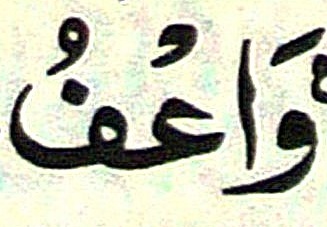 وَاعْفُ